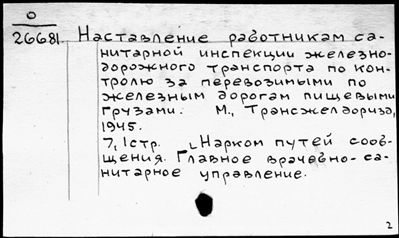 О
26681. Наставление работникам са-
нитарной инспекции железно-
дорожного транспорта по кон-
тролю за перевозимыми по
железным дорогам пищевыми
грузами. М., Трансжелдориздат,
1945.
7, 1 стр. [Нарком путей сооб-
щения. Главное врачебно-са-
нитарное управление.
2